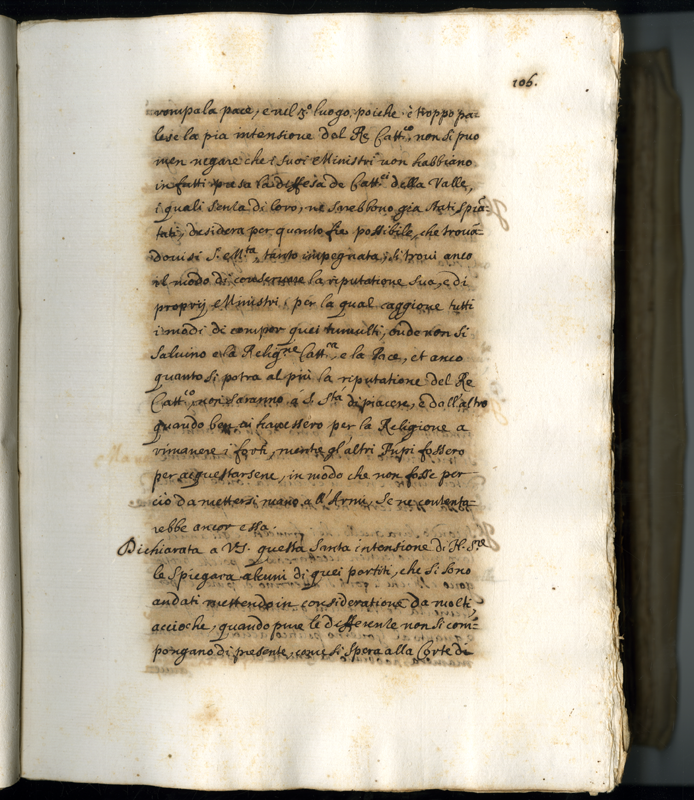 106.
rompa la pace, e nel 3.º luogo, poiche è troppo pa-
lese la pia intensione del Re Catt.co, non si puo
men negare che i suoi Ministri non habbiano
in fatti presa la diffesa de Catt.ci della Valle,
i quali senza di loro, ne sarebbono già stati spian-
tati, desidera per quanto fia possibile, che trouan-
douisi S. M.tà, tanto impegnata, si troui anco
il modo di conseruare la riputatione sua, e di
proprij Ministri, per la qual caggione tutti
i modi di compor quei tumulti, onde non si
saluino e la Relig.ne Catt.ca, e la Pace, et anco
quanto si potra al più la riputatione del Re
Catt.co, non saranno à S. S.tà di piacere, e dall'altro
quando ben, ui hauessero per la Religione a
rimanere i forti, mentre gl'altri Pupi fossero
per acquestarsene, in modo che non fosse per-
ciò da mettersi mano a l'Armi, se ne contenta-
rebbe ancor essa.
Dichiarata a V.S. questa santa intensione di N. S.re
le spiegara alcuni di quei partiti, che si sono
andati mettendo in consideratione da molti,
accioche, quando pure le differenze non si com-
pongano di presente, come si spera alla Corte di